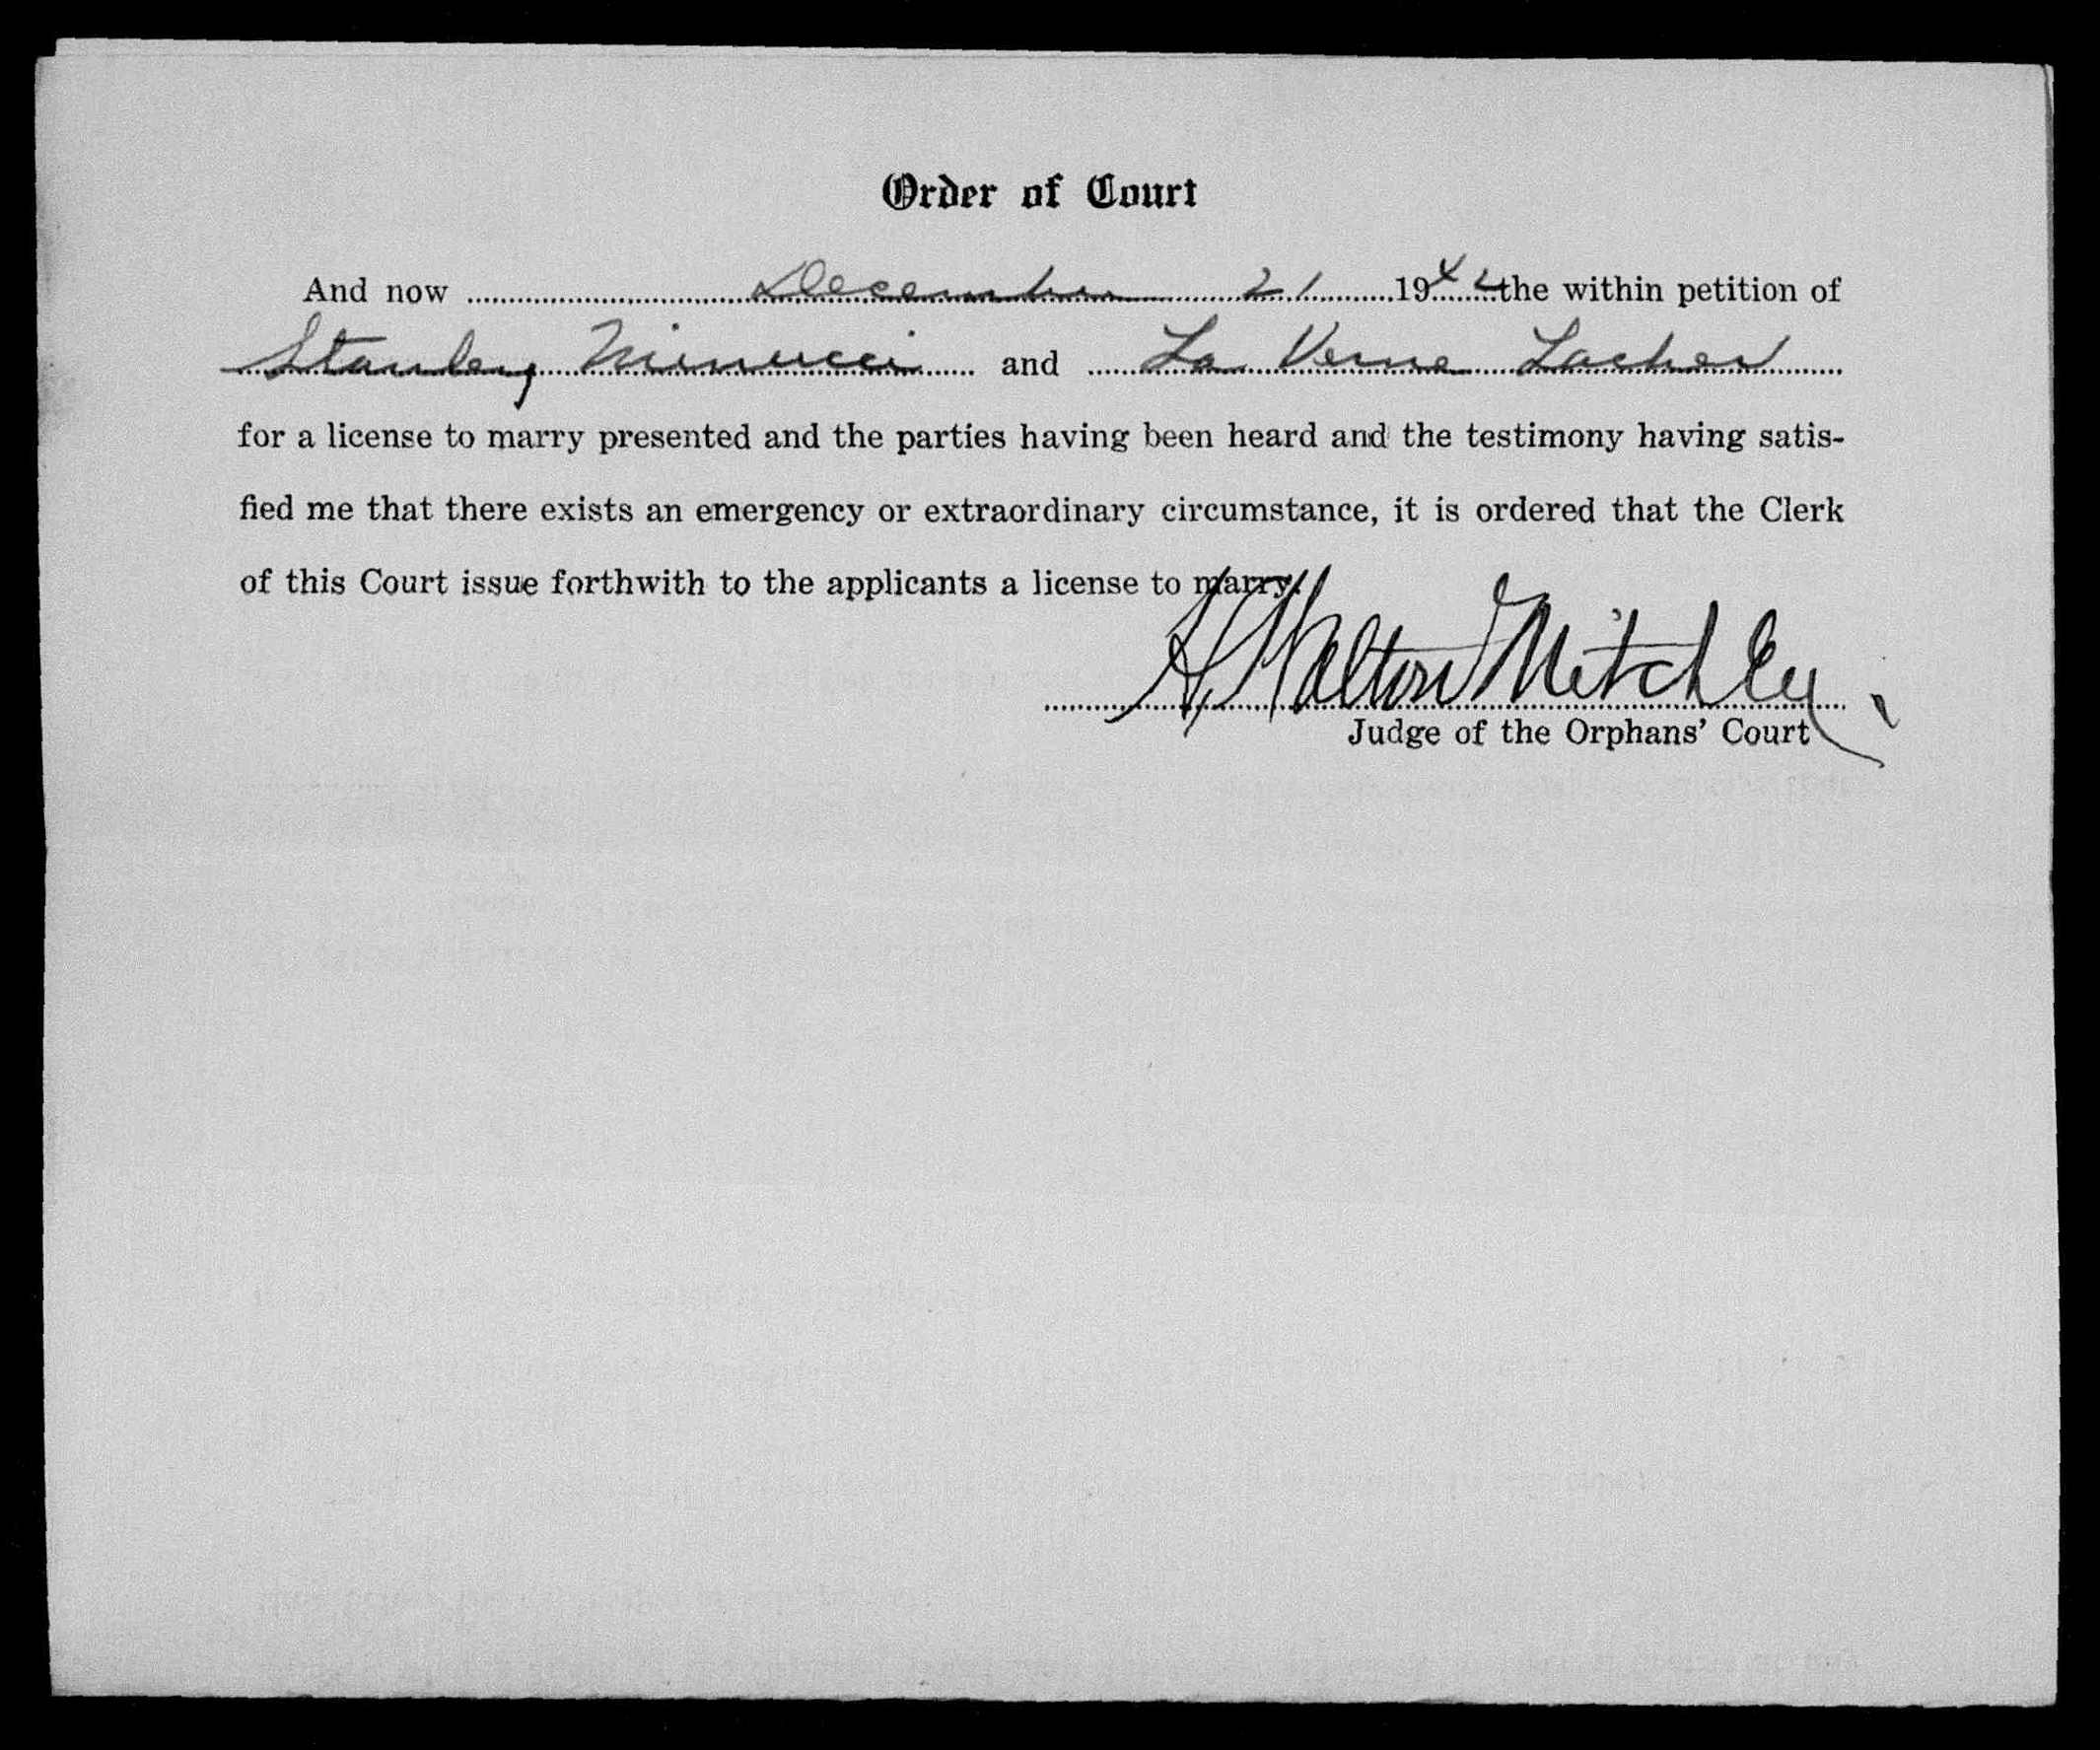 Order of Court
And now December 21 1942 the within petition of
Stanley Minucci and La Verne Lacher
for a license to marry presented and the parties having been heard and the testimony having satis-
fied me that there exists an emergency or extraordinary circumstance, it is ordered that the Clerk
of this Court issue forthwith to the applicants a license to marry.
H. Walton Mitchley
Judge of the Orphans' Court